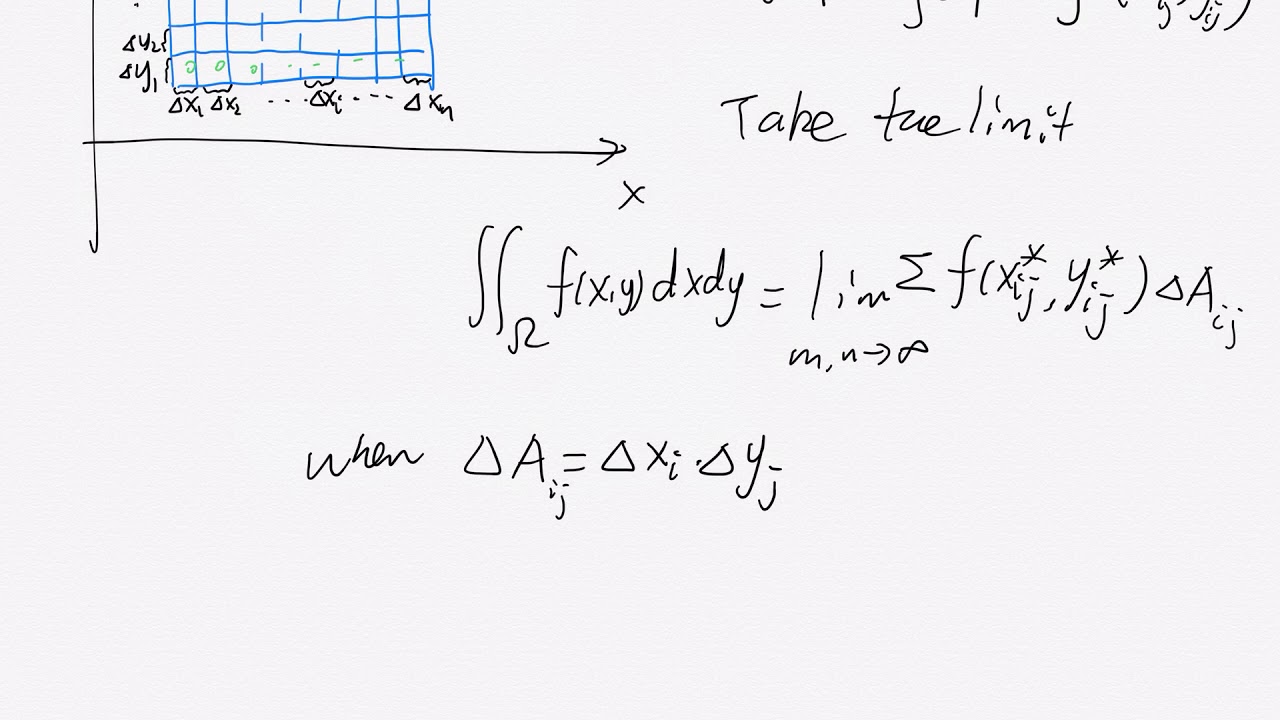 Δy₂
Δy₁
Δx₁ Δx₂ ... Δxᵢ ... Δxₙ
x
Take the limit
∬_Ω f(x,y)dxdy = lim Σ f(xᵢⱼ*, yᵢⱼ*) ΔAᵢⱼ
m, n → ∞
when ΔAᵢⱼ = Δxᵢ · Δyⱼ